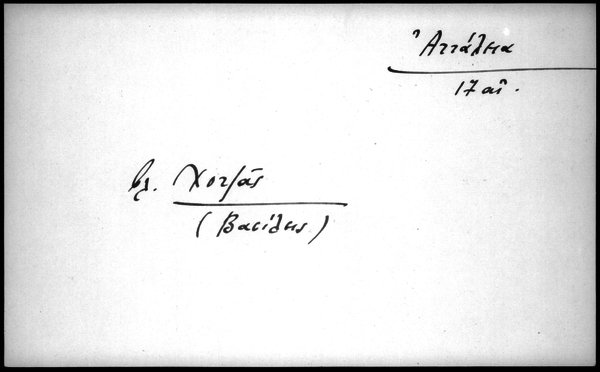 Ἀττάλεια
17 αἰ.
βλ. Χοτζᾶς
(Βασίλης)